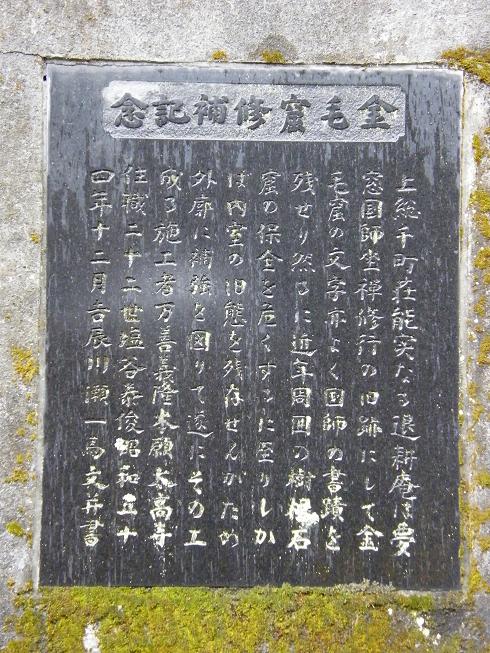 金毛窟修補記念
上総千町荘能実なる退耕庵は夢
窓国師坐禅修行の旧跡にして金
毛窟の文字亦よく国師の書蹟を
残せり然るに近年周囲の樹根石
窟の保全を危くするに至りしか
ば内室の旧態を残存せんがため
外廓に補強を図りて遂にその工
成る施工者万善義隆本願太高寺
住職二十二世塩谷泰俊昭和五十
四年十二月吉辰川瀬一馬文并書